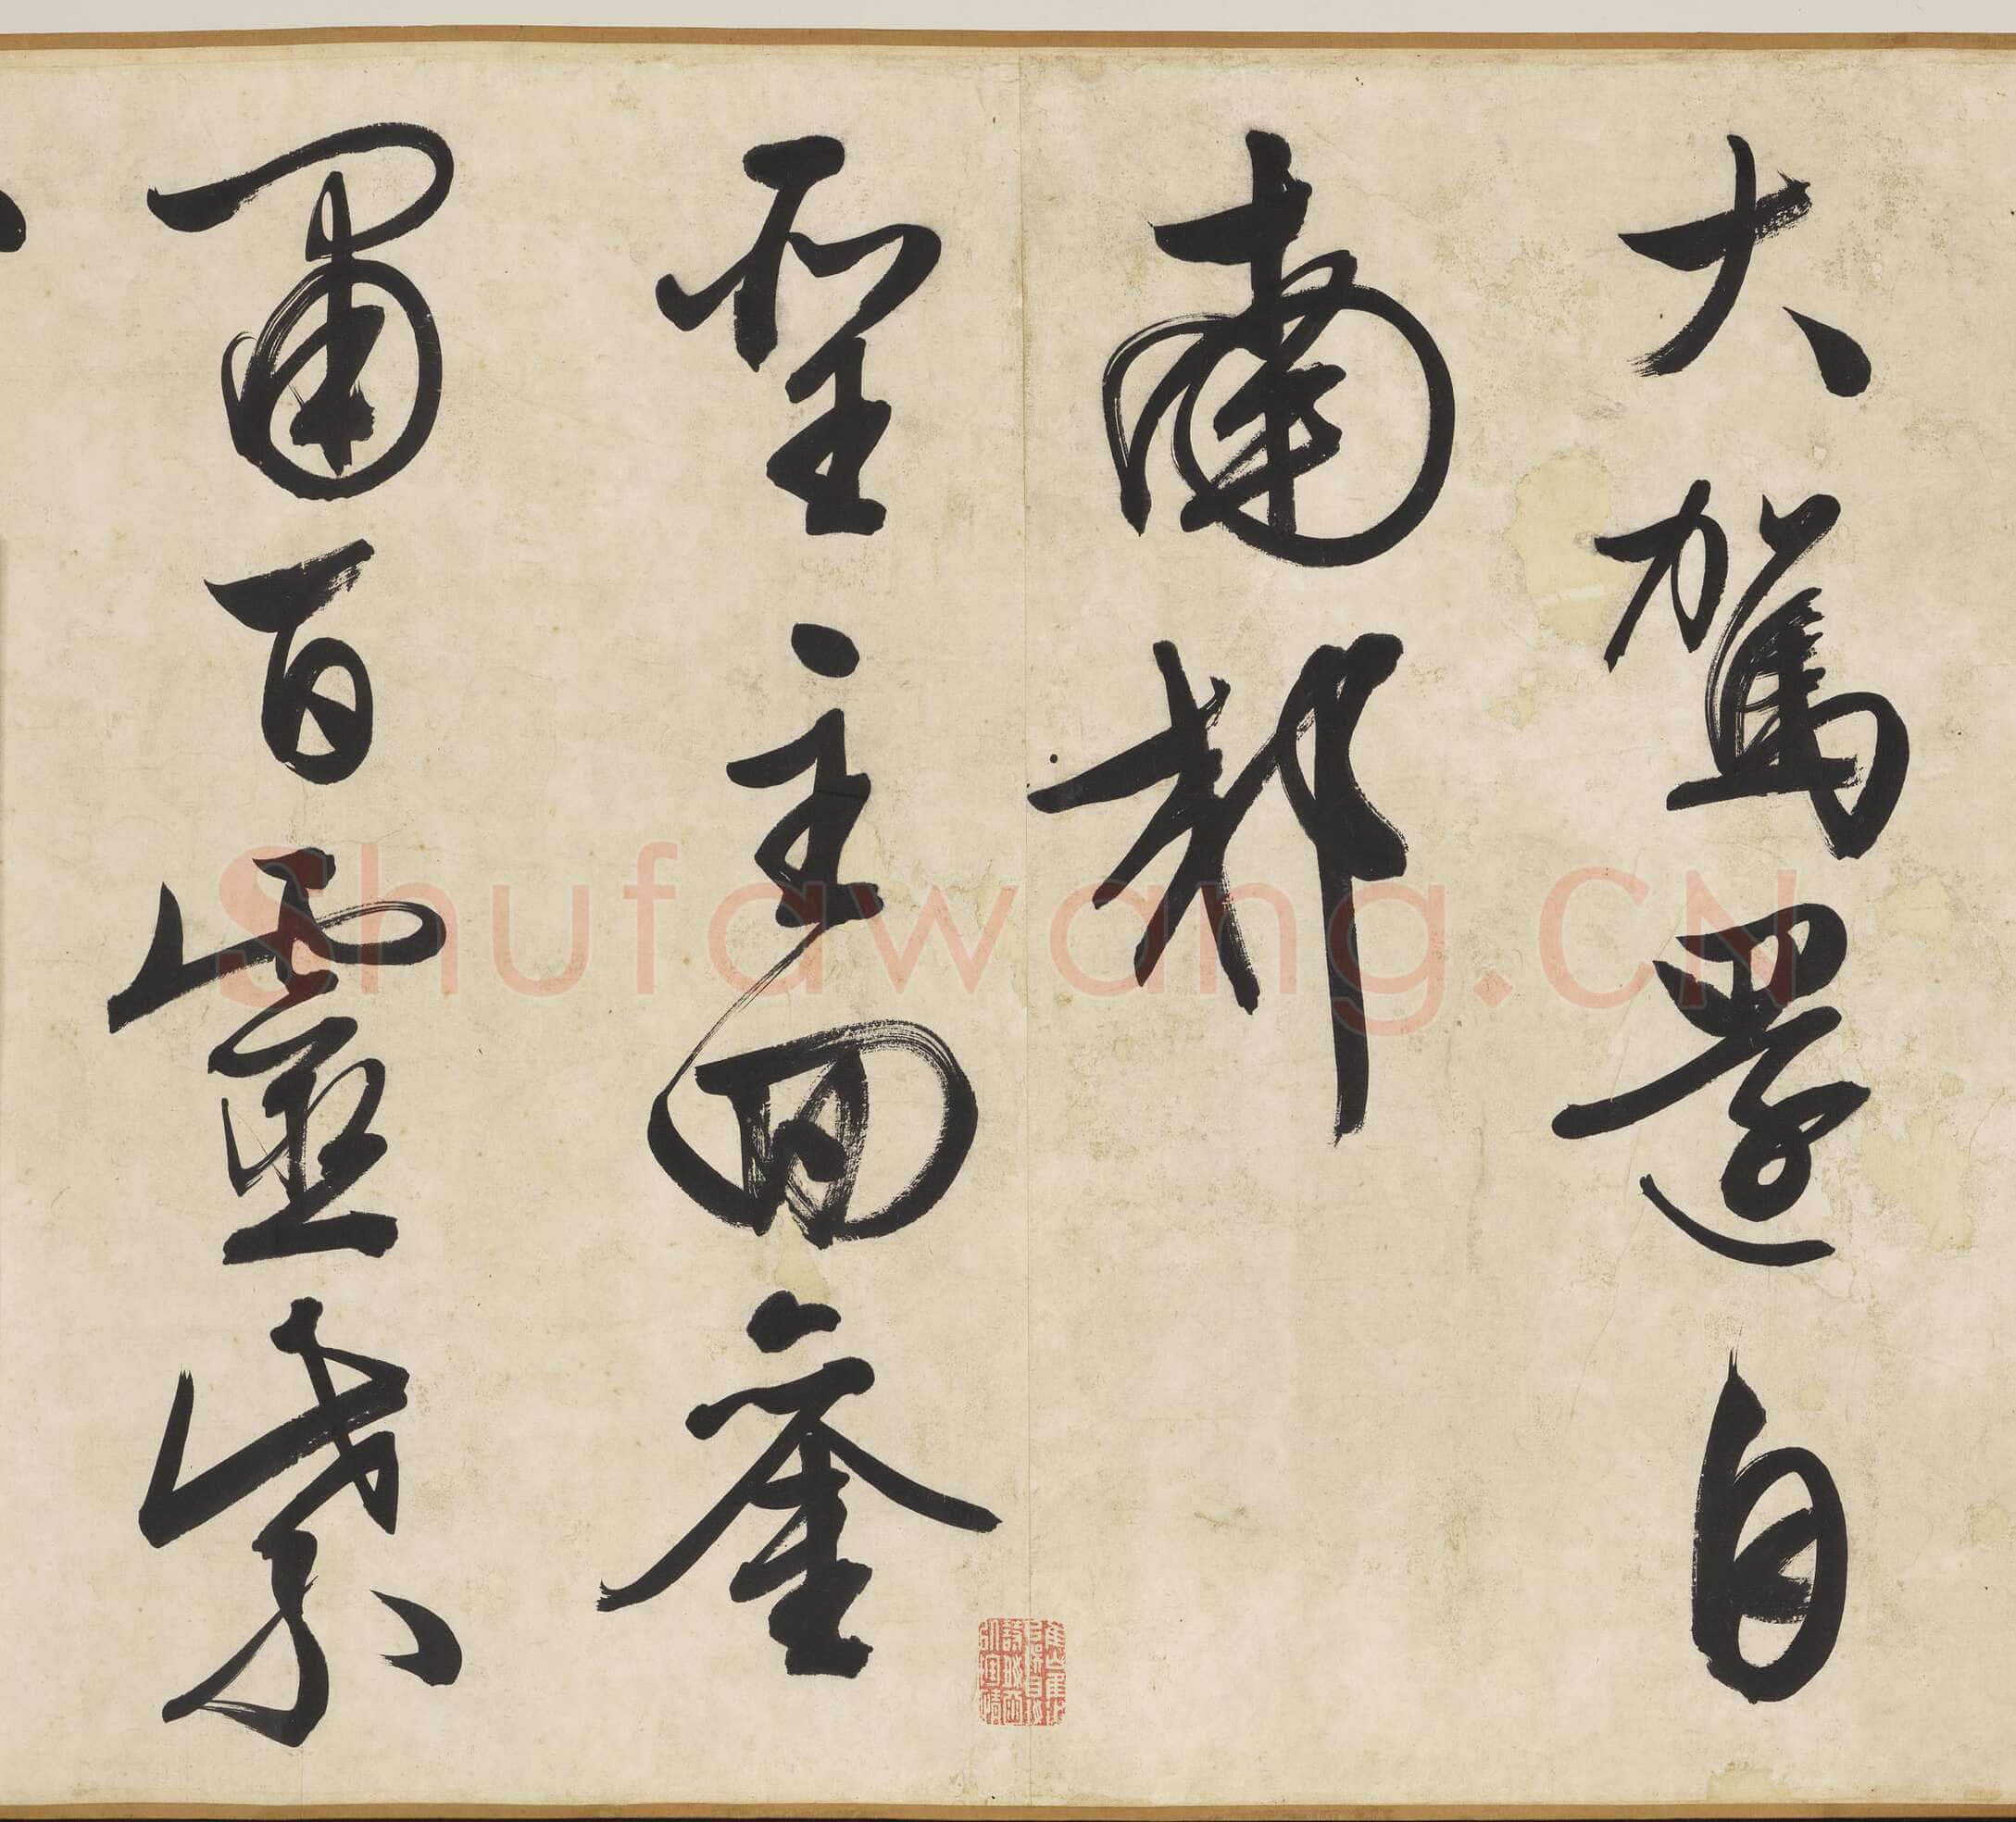 大駕還自
南都
聖主回鑾
肅百靈紫
Shufawang.CN